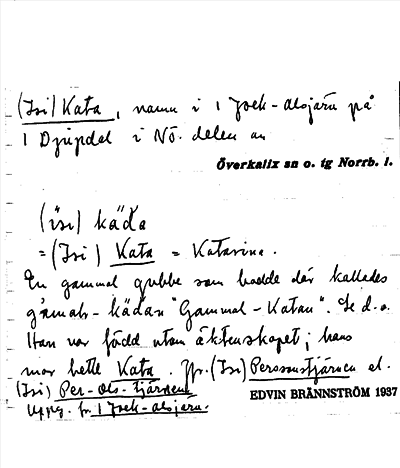 (Isi) Kata, namn i 1 Jock-Olsjärn på
1 Djupdal i NÖ. delen av
Överkalix sn o. tg Norrb. l.
(ìsi) käda
= (Isi) Kata = Katarina.
En gammal gubbe som bodde där kallades
gamal-kädan "Gammal-Katan". Se d.o.
Han var född utom äktenskapet; hans
mor hette Kata. Jfr. (Isi) Perssonstjärnen el.
(Isi) Per-Ols-tjärnen
Uppg. fr. 1 Jock-Olsjärn.
EDVIN BRÄNNSTRÖM 1937